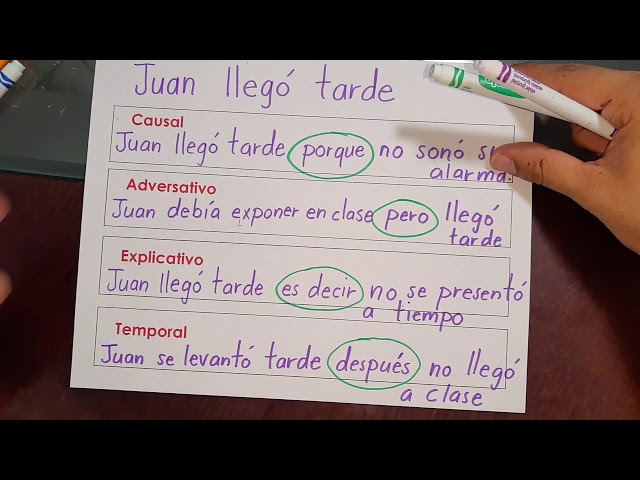 Juan llegó tarde
Causal
Juan llegó tarde porque no sonó su
alarma.
Adversativo
Juan debía exponer en clase pero llegó
tarde
Explicativo
Juan llegó tarde es decir no se presentó
a tiempo
Temporal
Juan se levantó tarde después no llegó
a clase